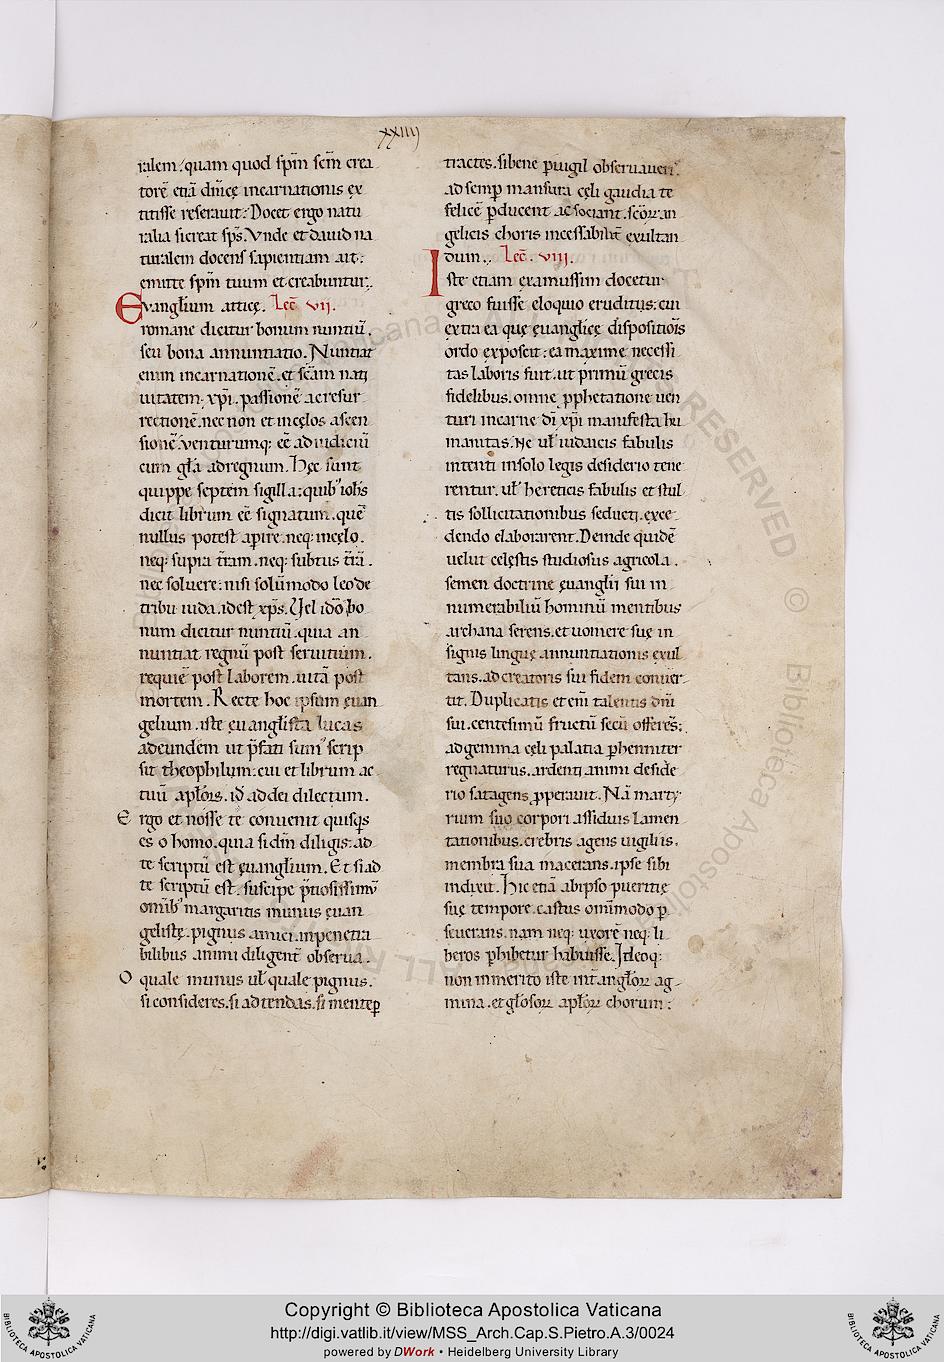 xxiiij
ralem. quam quod sp̄m sc̄m crea
torē etiā dn̄icę incarnationis ex
titisse reserauit: Docet ergo natu
ralia si creat sp̄s. Vnde et dauid na
turalem docens sapientiam ait:
emitte sp̄m tuum et creabuntur:.
Evanglium atticę. Lec̄ vii.
romane dicitur bonum nuntiū.
seu bona annuntiatio. Nuntiat
enim incarnationē. et sc̄am nati
uitatem. xp̄i. passionē ac resur
rectionē. nec non et in cęlos ascen
sionē. venturumq: eē ad iudiciū
cum gl̄a ad regnum. Hęc sunt
quippe septem sigilla: quib' ioh̄s
dicit librum eē signatum. quē
nullus potest aperire. neq: in cęlo.
neq: supra t̄ram. neq: subtus t̄rā.
nec soluere: nisi solūmodo leo de
tribu iuda. id est xp̄s. Vel idō bo
num dicitur nuntiū. quia an
nuntiat regnū post seruitium.
requiē post laborem. uitā post
mortem. Recte hoc ipsum euan
gelium. iste euanglista lucas
ad eundem ut p̄fati sum' scrip
sit theophilum: cui et librum ac
tuū aplōꝝ. id ad dei dilectum.
Ergo et nosse te conuenit quisqs
es o homo. quia si dm̄ diligis: ad
te scriptū est ęuanglium. Et si ad
te scriptū est. suscipe p̄tiosissimū
omīb' margaritis munus ęuan
gelistę. pignus amici. in penetra
bilibus animi diligent̄ obserua.
O quale munus ul' quale pignus.
si consideres. si adtendas. si mente ꝑ
tractes. si bene ꝑuigil obseruaueri'.
ad semꝑ mansura cęli gaudia te
felicē ꝑducent ac sociant. sc̄oꝝ an
gelicis choris incessabilit̄ exultan
dum:. Lec̄. viii.
Iste etiam examussim docetur
greco fuisse eloquio eruditus: cui
extra ea quę ęuanglicę dispositiōis
ordo exposcit: ea maxime necessi
tas laboris fuit. ut primū grecis
fidelibus. omne ꝓphetatione uen
turi in carne dī xp̄i manifesta hu
manitas. Ne ul' iudaicis fabulis
intenti in solo legis desiderio tene
rentur. ul' hereticis fabulis et stul
tis sollicitationibus seducti. exce
dendo elaborarent. Deinde quidē
uelut celęstis studiosus agricola.
semen doctrine ęuanglii sui in
numerabiliū hominū mentibus
archana serens. et uomere suę in
signis linguę annuntiationis exul
tans. ad creatoris sui fidem conuer
tit. Duplicatis et enī talentis dn̄i
sui. centesimū fructū secū offerēs:
ad gemina cęli palatia ꝑhenniter
regnaturus. ardenti animi deside
rio satagens ꝓperauit. Nā marty
rium suo corpori assiduis lamen
tationibus. crebris agens uigiliis.
membra sua macerans. ipse sibi
indixit. Hic etiā ab ipso pueritię
suę tempore. castus omīmodo ꝑ
seuerans. nam neq: uxorē neq: li
beros ꝑhibetur habuisse. Idcoq:
non inmerito iste int̄ angloꝝ ag
mina. et gl̄osoꝝ aplōꝝ chorum:
Copyright © Biblioteca Apostolica Vaticana
http://digi.vatlib.it/view/MSS_Arch.Cap.S.Pietro.A.3/0024
powered by DWork • Heidelberg University Library
BIBLIOTECA APOSTOLICA VATICANA
BIBLIOTECA APOSTOLICA VATICANA